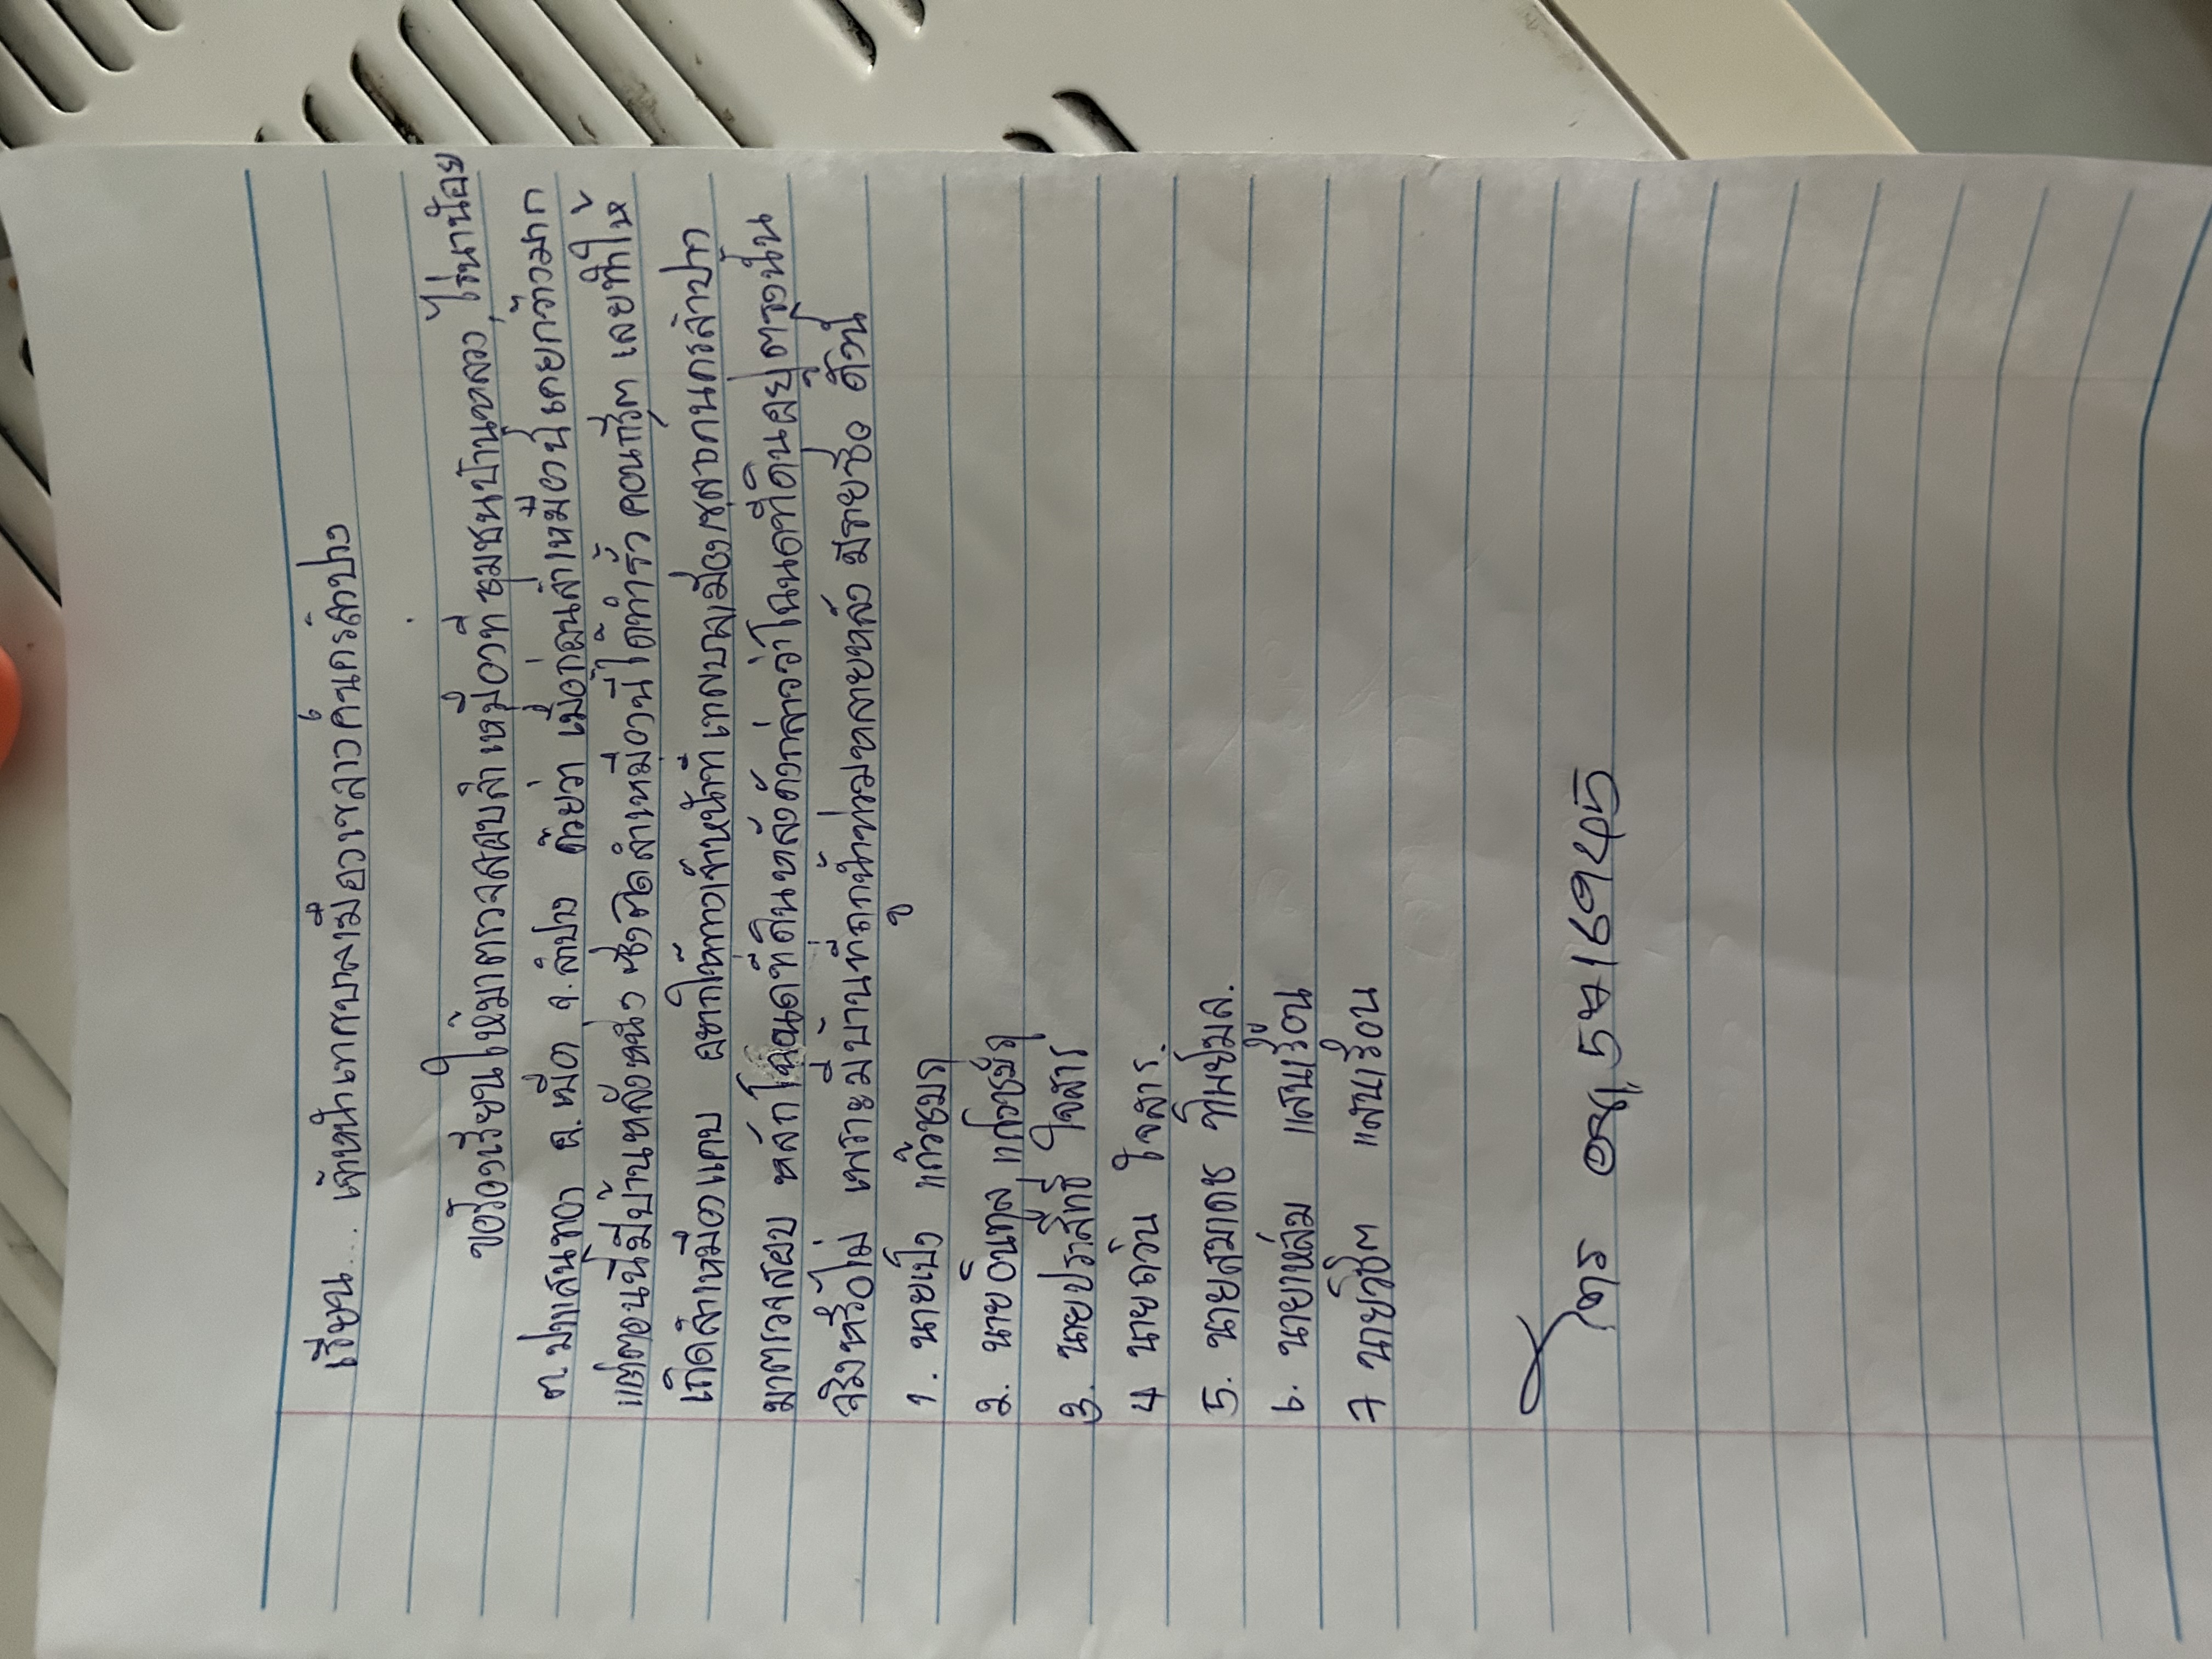 เรียน.... เจ้าหน้าเทศบาลเมืองเขลางค์นครลำปาง
ขอร้องเรียนให้มาตรวจสอบลำเหมืองที่ ชุมชนบ้านหลวง ไร่นาน้อย
ต. ปงแสนทอง อ. เมือง จ. ลำปาง ด้วยว่า เมื่อก่อนลำเหมืองนี้เคยกว้างมาก
แต่ตอนนี้มีบ้านหลังหนึ่ง ซึ่งติดลำเหมืองนี้ได้ทำรั้ว คอนกรีต เลยทำให้
เกิดลำเหมืองแคบ อยากให้ทางเจ้าหน้าที่เทศบาลเมืองเขลางคนครลำปาง
มาตรวจสอบ หลักโฉนดที่ดินหลังดังกล่าวว่าโฉนดที่ดินอยู่ตรงนั้น
จริงหรือไม่ เพราะมีบ้านที่ถูกน้ำท่วมหลายหลัง มีรายชื่อ ดังนี้
1. นายเป็ง แก้วชมภู
2. นายอินทอง แก้วชมภู
3. นายประสิทธิ์ ใจสาร
4 นายถวิน ใจสาร.
5. นายสมเดช ทิพย์มล.
6. นายเหล่ม แสนเรือน
7 นายวิชิต แสนเรือน
โทร 08